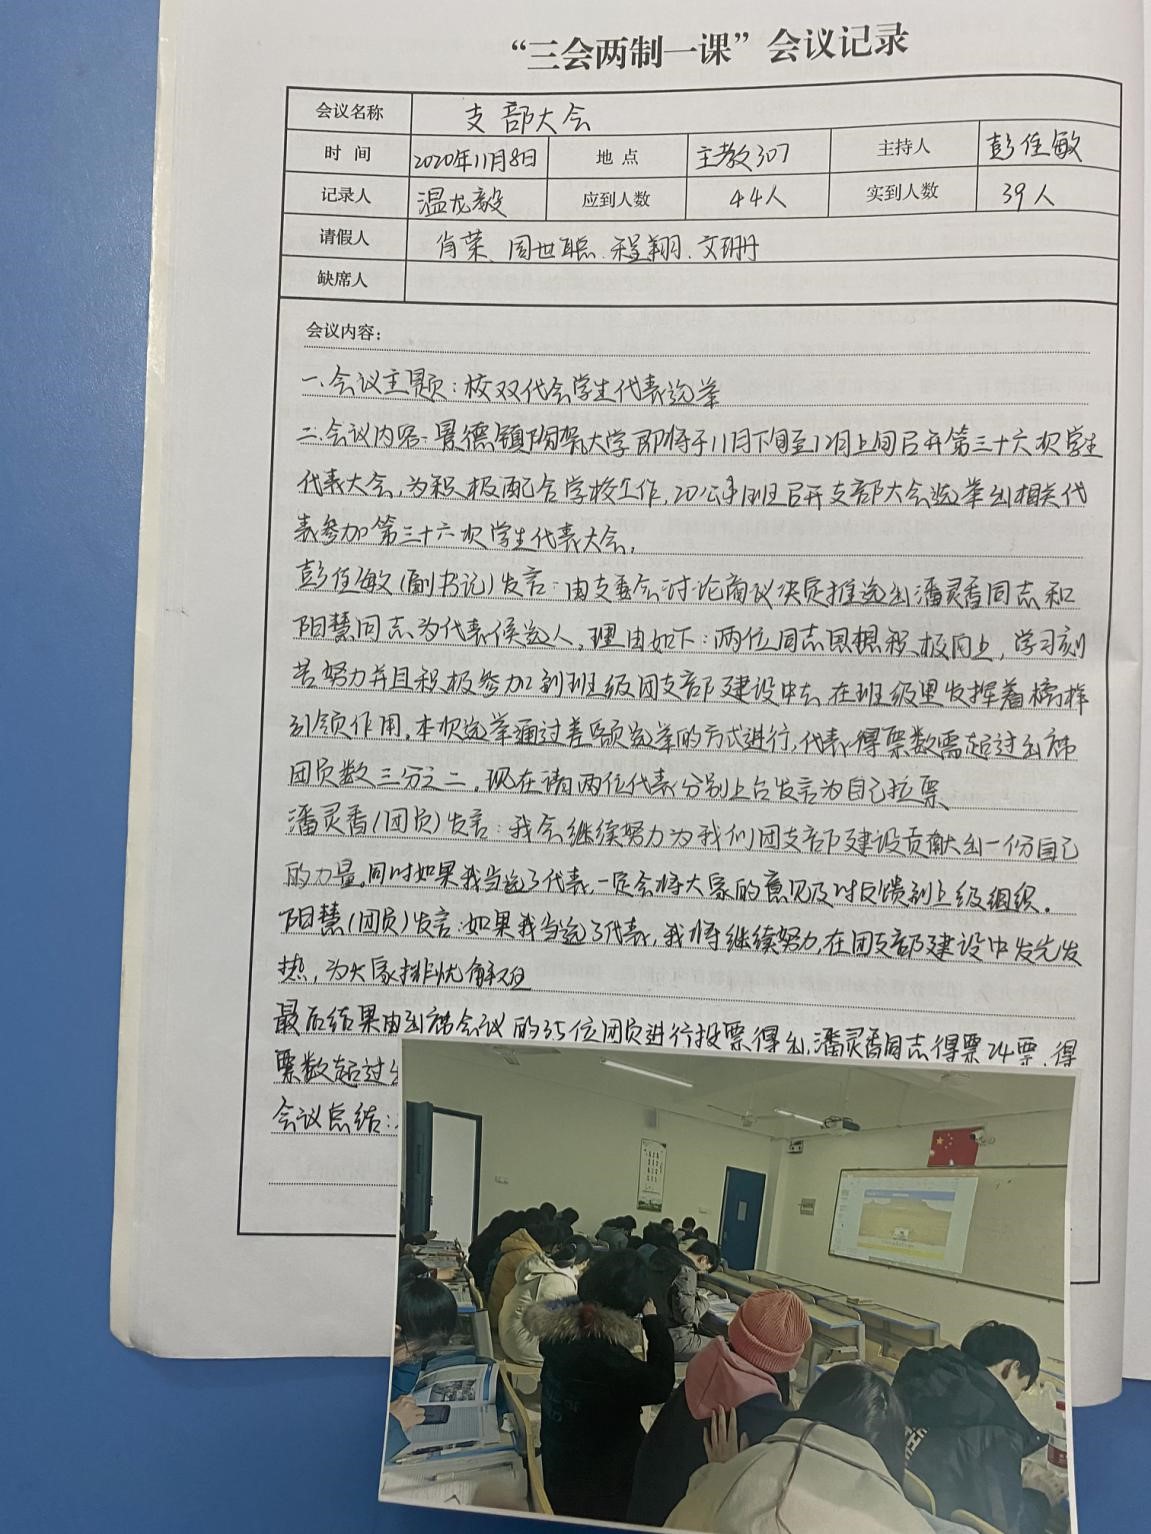 “三会两制一课”会议记录
会议名称 支部大会
时 间 2020年11月8日 地 点 主教307 主持人 彭佳敏
记录人 温龙毅 应到人数 44人 实到人数 39人
请假人 肖荣、周世聪、程翔、文珊
缺席人
会议内容：
一.会议主题：校双代会学生代表选举
二.会议内容：景德镇陶瓷大学即将于11月下旬至12月上旬召开第三十六次学生
代表大会,为积极配合学校工作,20公事班召开支部大会选举出相关代
表参加第三十六次学生代表大会.
彭佳敏(副书记)发言：由支委会讨论商议决定推选出潘灵香同志和
阳慧同志为代表候选人,理由如下：两位同志思想积极向上，学习刻
苦努力并且积极参加到班级团支部建设中去,在班级里发挥着榜样
引领作用.本次选举通过差额选举的方式进行,代表得票数需超过出席
团员数三分之二.现在请两位代表分别上台发言为自己拉票
潘灵香(团员)发言：我会继续努力为我们团支部建设贡献出一份自己
的力量.同时如果我当选了代表,一定会将大家的意见及时反馈到上级组织.
阳慧(团员)发言：如果我当选了代表,我将继续努力,在团支部建设中发光发
热,为大家排忧解难
最后结果由出席会议的35位团员进行投票得出,潘灵香同志得票24票,得
票数超过
会议总结：